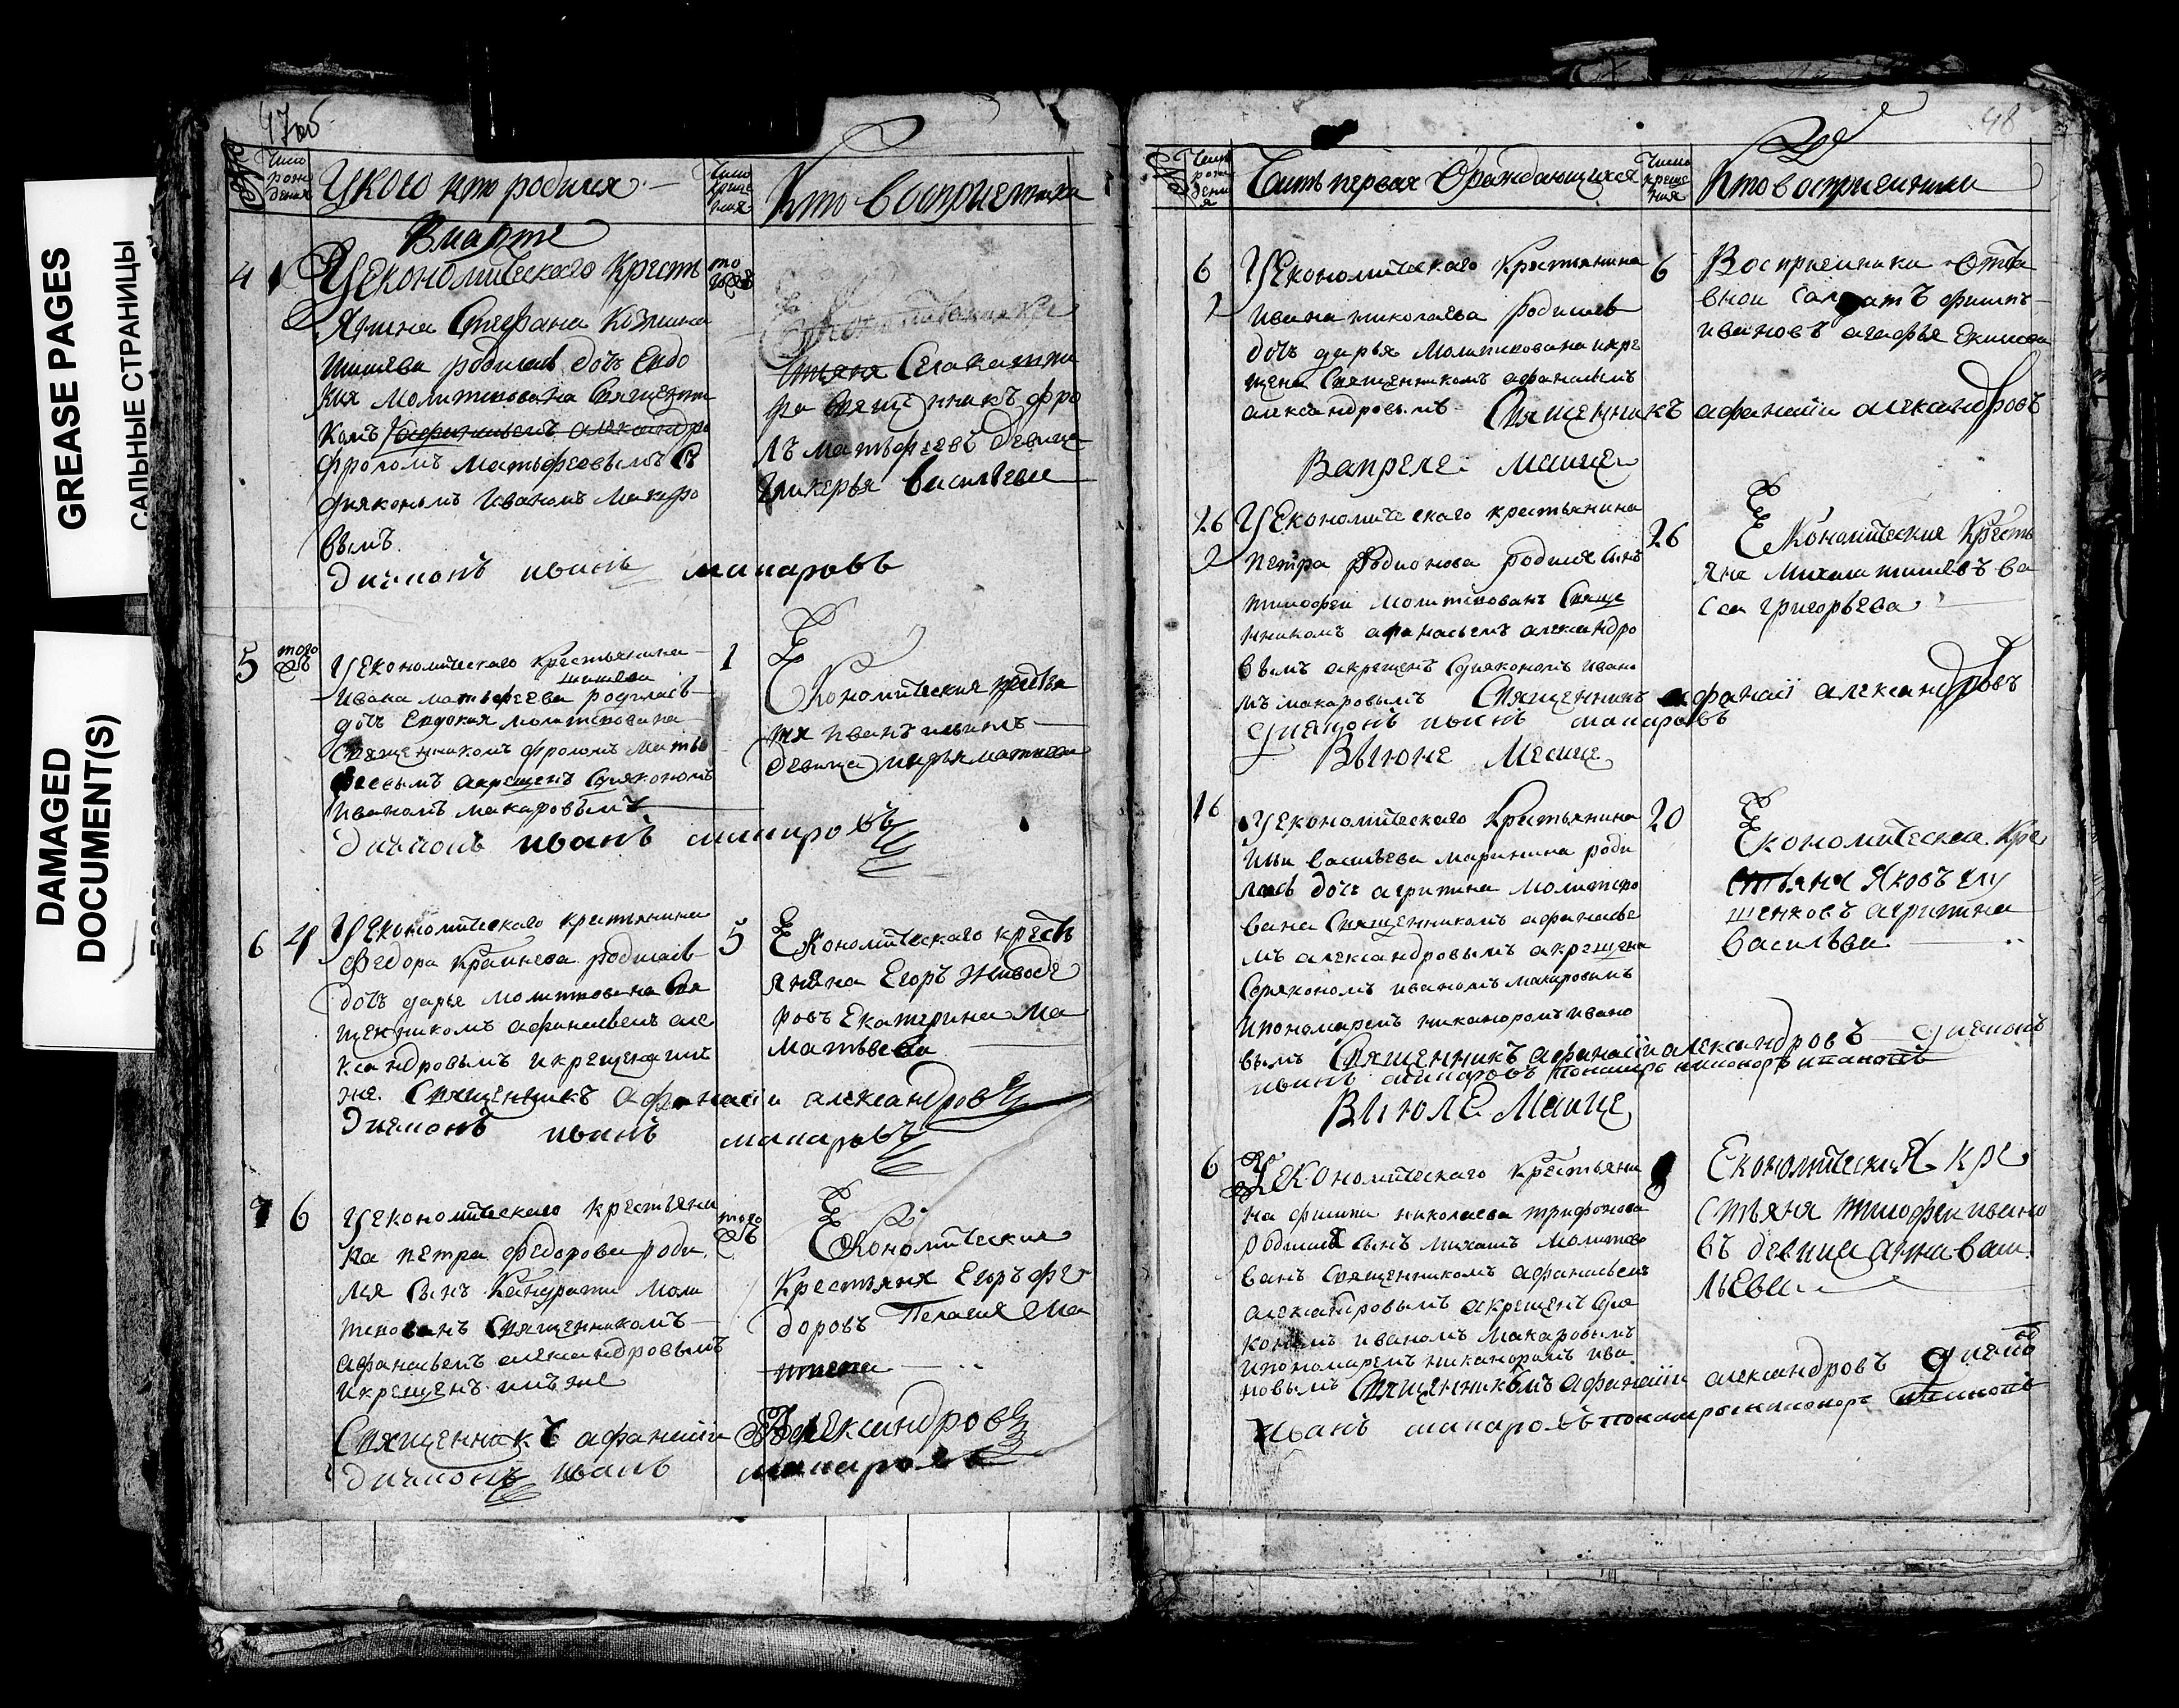 GREASE PAGES
САЛЬНЫЕ СТРАНИЦЫ
DAMAGED
DOCUMENT(S)
47об
Число рождения
У кого кто родился
Число крещения
Кто восприемники
В марте
4
1
У Економического кресть
того
янина Стефана Козмина
Шишева родилась дочь Евдо
кия молитвована Священни
комъ афанасьемъ александро
фроломъ матьфеевымъ С
дияконом Иваномъ Макаро
вымъ
дияконъ иванъ макаровъ
села
священникъ фро
лъ матьфеевъ девица
Гликерья Васильева
5
того
У Економического крестьянина
Шишева
Ивана матьфеева родилась
дочь Евдокия молитвована
Священникомъ фроломъ матьо
феевымъ а крещенъ Сдиякономъ
Иваномъ макаровымъ
дияконъ иванъ макаровъ
1
Економические крестья
ня иванъ ильинъ
девица марья матьвеева
6
4
У Економического крестьянина
Федора Крайнева родилась
дочь дарья молитвована Свя
щенникомъ афанасьемъ але
ксандровымъ и крещена имъ
же. Священникъ афанасии александровъ
Дияконъ иванъ макаровъ
5
Економического кресть
янина Егоръ
ровъ Екатерина Ма
Матьвева
7
6
У економического крестьяни
на петра федорова роди
лся сынъ Кандратии моли
твованъ Священникомъ
афанасьемъ александровымъ
и крещенъ имъ же
Священникъ афанасии Александровъ
дияконъ иванъ макаровъ
того
Економические
Крестьяня Егоръ фе
доровъ Пелагея
48
Число рождения
Часть первая О раждающихся
Число крещения
Кто восприемники
6
У Економического Крестьянина
ивана николаева родилась
дочь дарья молитвована и кре
щена Священникомъ афанасьемъ
александровымъ Священникъ афанасии александровъ
6
Восприемники отста
внои салдатъ филипъ
ивановъ агафья Екимова
В апреле месяце
26
У Економического крестьянина
петра Родионова родился сынъ
тимофеи молитвованъ Свяще
нникомъ афанасьемъ александро
вымъ а крещенъ Сдиякономъ ивано
мъ макаровымъ Священникъ афанасиї александровъ
дияконъ иванъ макаровъ
26
Економические Кресть
яне Михаила шишевъ ва
сса григорьева
В июне Месяце
16
У економического Крестьянина
Ильи Васильева маринина роди
лась дочь агрипина молитво
вана Священникомъ афанасье
мъ александровымъ а крещена
Сдиякономъ иваномъ макаровымъ
Ипономаремъ никаноромъ ивано
вымъ Священникъ афанасїи александровъ дияконъ
иванъ макаровъ пономарь никаноръ ивановъ
20
Економическия Кре
стьяне Яковъ глу
щенковъ агрипина
Васильва
В июле Месяце
6
У Економического Крестьяни
на филипа николаева трифонова
родился сынъ михаилъ молитво
ванъ Священникомъ афанасьемъ
александровымъ а крещенъ Сдия
кономъ иваномъ Макаровымъ
Ипономаремъ никаноромъ ива
новымъ Священникомъ афанасии александровъ дияко
иванъ макаровъ пономарь никаноръ ивановъ
8
Економическия кре
стьяня тимофеи ивано
въ девица анна васи
льева